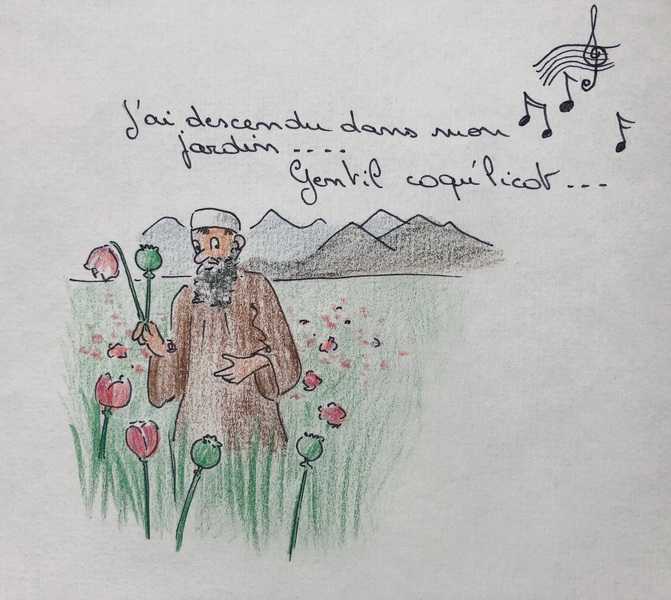 J'ai descendu dans mon
jardin ....
Gentil coqu'licot ...